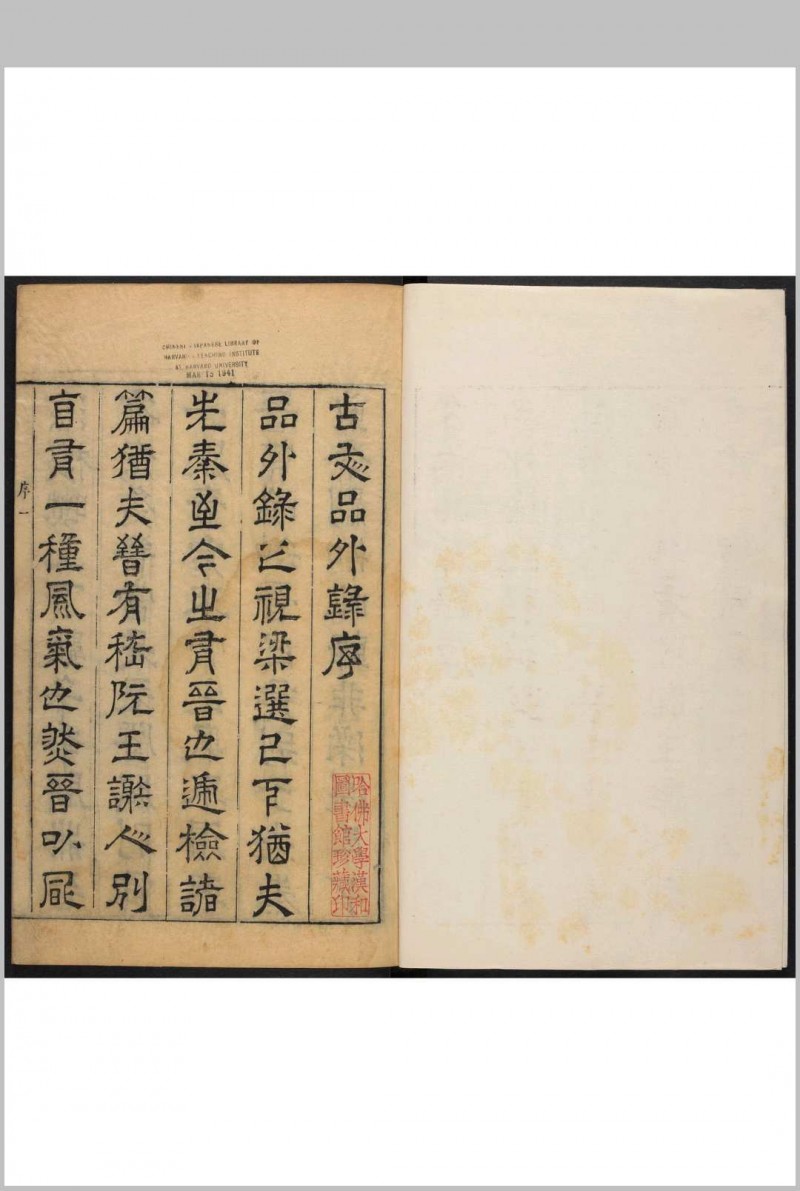 CHINESE - JAPANESE LIBRARY OF
HARVARD - YENCHING INSTITUTE
AT HARVARD UNIVERSITY
MAR 15 1941
古文品外錄序
哈佛大學漢和
圖書館珍藏印
品外錄之視梁選已下猶夫
先秦至今之有晉也遞檢諸
篇猶夫晉有嵇阮王謝人別
自有一種風氣也然晉以
序一